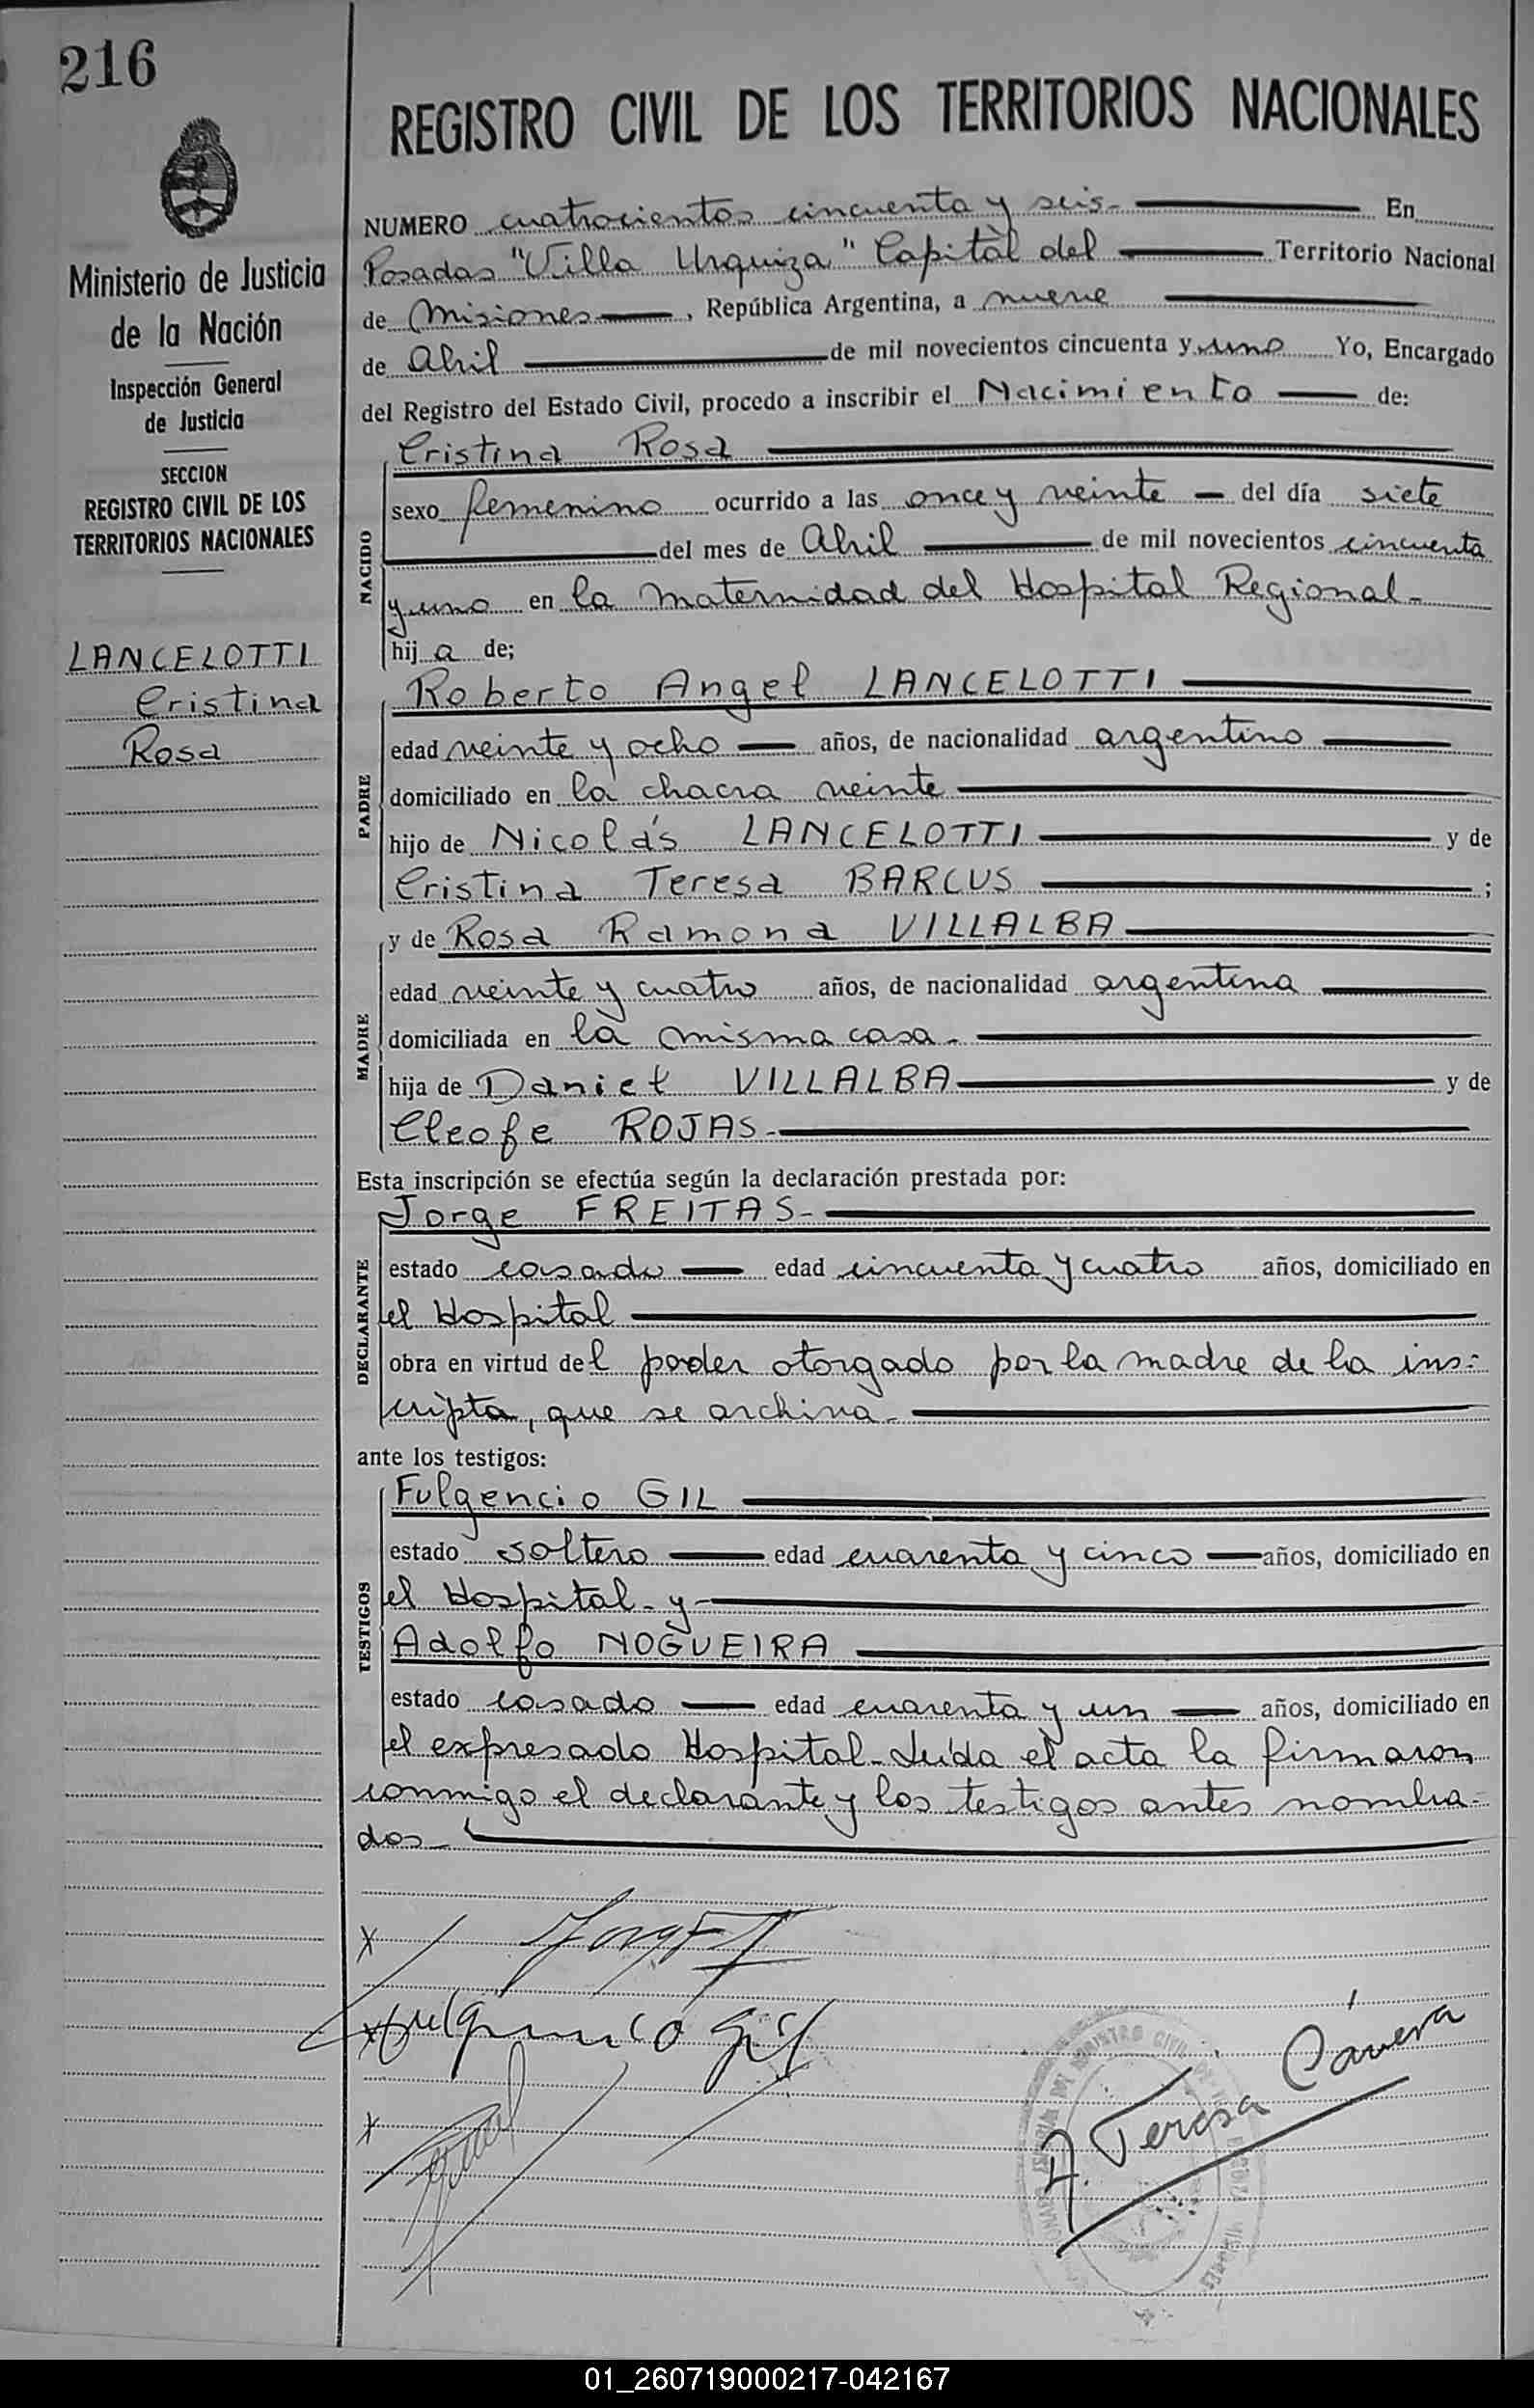 216
REGISTRO CIVIL DE LOS TERRITORIOS NACIONALES
Ministerio de Justicia
de la Nación
Inspección General
de Justicia
SECCION
REGISTRO CIVIL DE LOS
TERRITORIOS NACIONALES
LANCELOTTI
Cristina
Rosa
NUMERO cuatrocientos cincuenta y seis- En
Posadas "Villa Urquiza" Capital del Territorio Nacional
de Misiones, República Argentina, a nueve
de Abril de mil novecientos cincuenta y uno Yo, Encargado
del Registro del Estado Civil, procedo a inscribir el Nacimiento de:
NACIDO
Cristina Rosa
sexo femenino ocurrido a las once y veinte del día siete
del mes de Abril de mil novecientos cincuenta
y uno en la maternidad del Hospital Regional-
hij a de;
PADRE
Roberto Angel LANCELOTTI
edad veinte y ocho años, de nacionalidad argentino
domiciliado en la chacra veinte
hijo de Nicolás LANCELOTTI y de
Cristina Teresa BARCUS ;
MADRE
y de Rosa Ramona VILLALBA
edad veinte y cuatro años, de nacionalidad argentina
domiciliada en la misma casa-
hija de Daniel VILLALBA y de
Cleofe ROJAS-
Esta inscripción se efectúa según la declaración prestada por:
DECLARANTE
Jorge FREITAS-
estado casado edad cincuenta y cuatro años, domiciliado en
el Hospital
obra en virtud del poder otorgado por la madre de la ins-
cripta, que se archiva-
ante los testigos:
TESTIGOS
Fulgencio GIL
estado soltero edad cuarenta y cinco años, domiciliado en
el Hospital-y-
Adolfo NOGUEIRA
estado casado edad cuarenta y un años, domiciliado en
el expresado Hospital-Leída el acta la firmaron
conmigo el declarante y los testigos antes nombra-
dos-
x
x Fulgencio Gil
x
A. Teresa Cavera
01_260719000217-042167